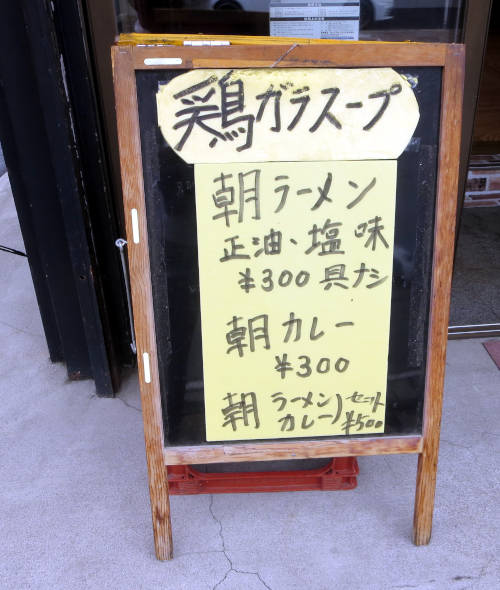 鶏ガラスープ
朝ラーメン
正油、塩味
¥300 具ナシ
朝カレー
¥300
朝 ラーメン
カレー
セット
¥500